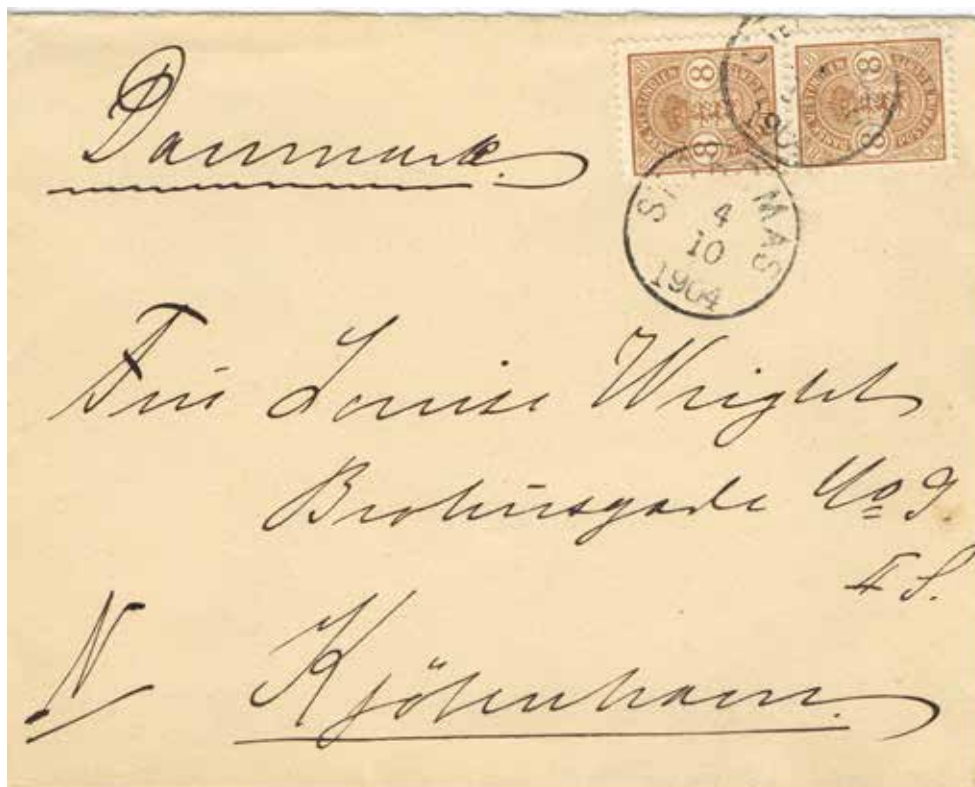 Danmark.
8 8
8 8
ST MAS
4
10
1904
Fru Louise Wright
Brohusgade No 9
S.
N Kjöbenhavn.